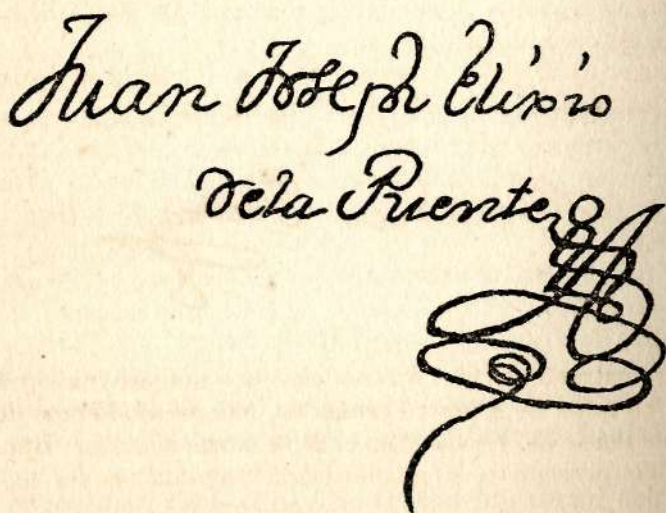 Juan Joseph Elixio
de la Puente